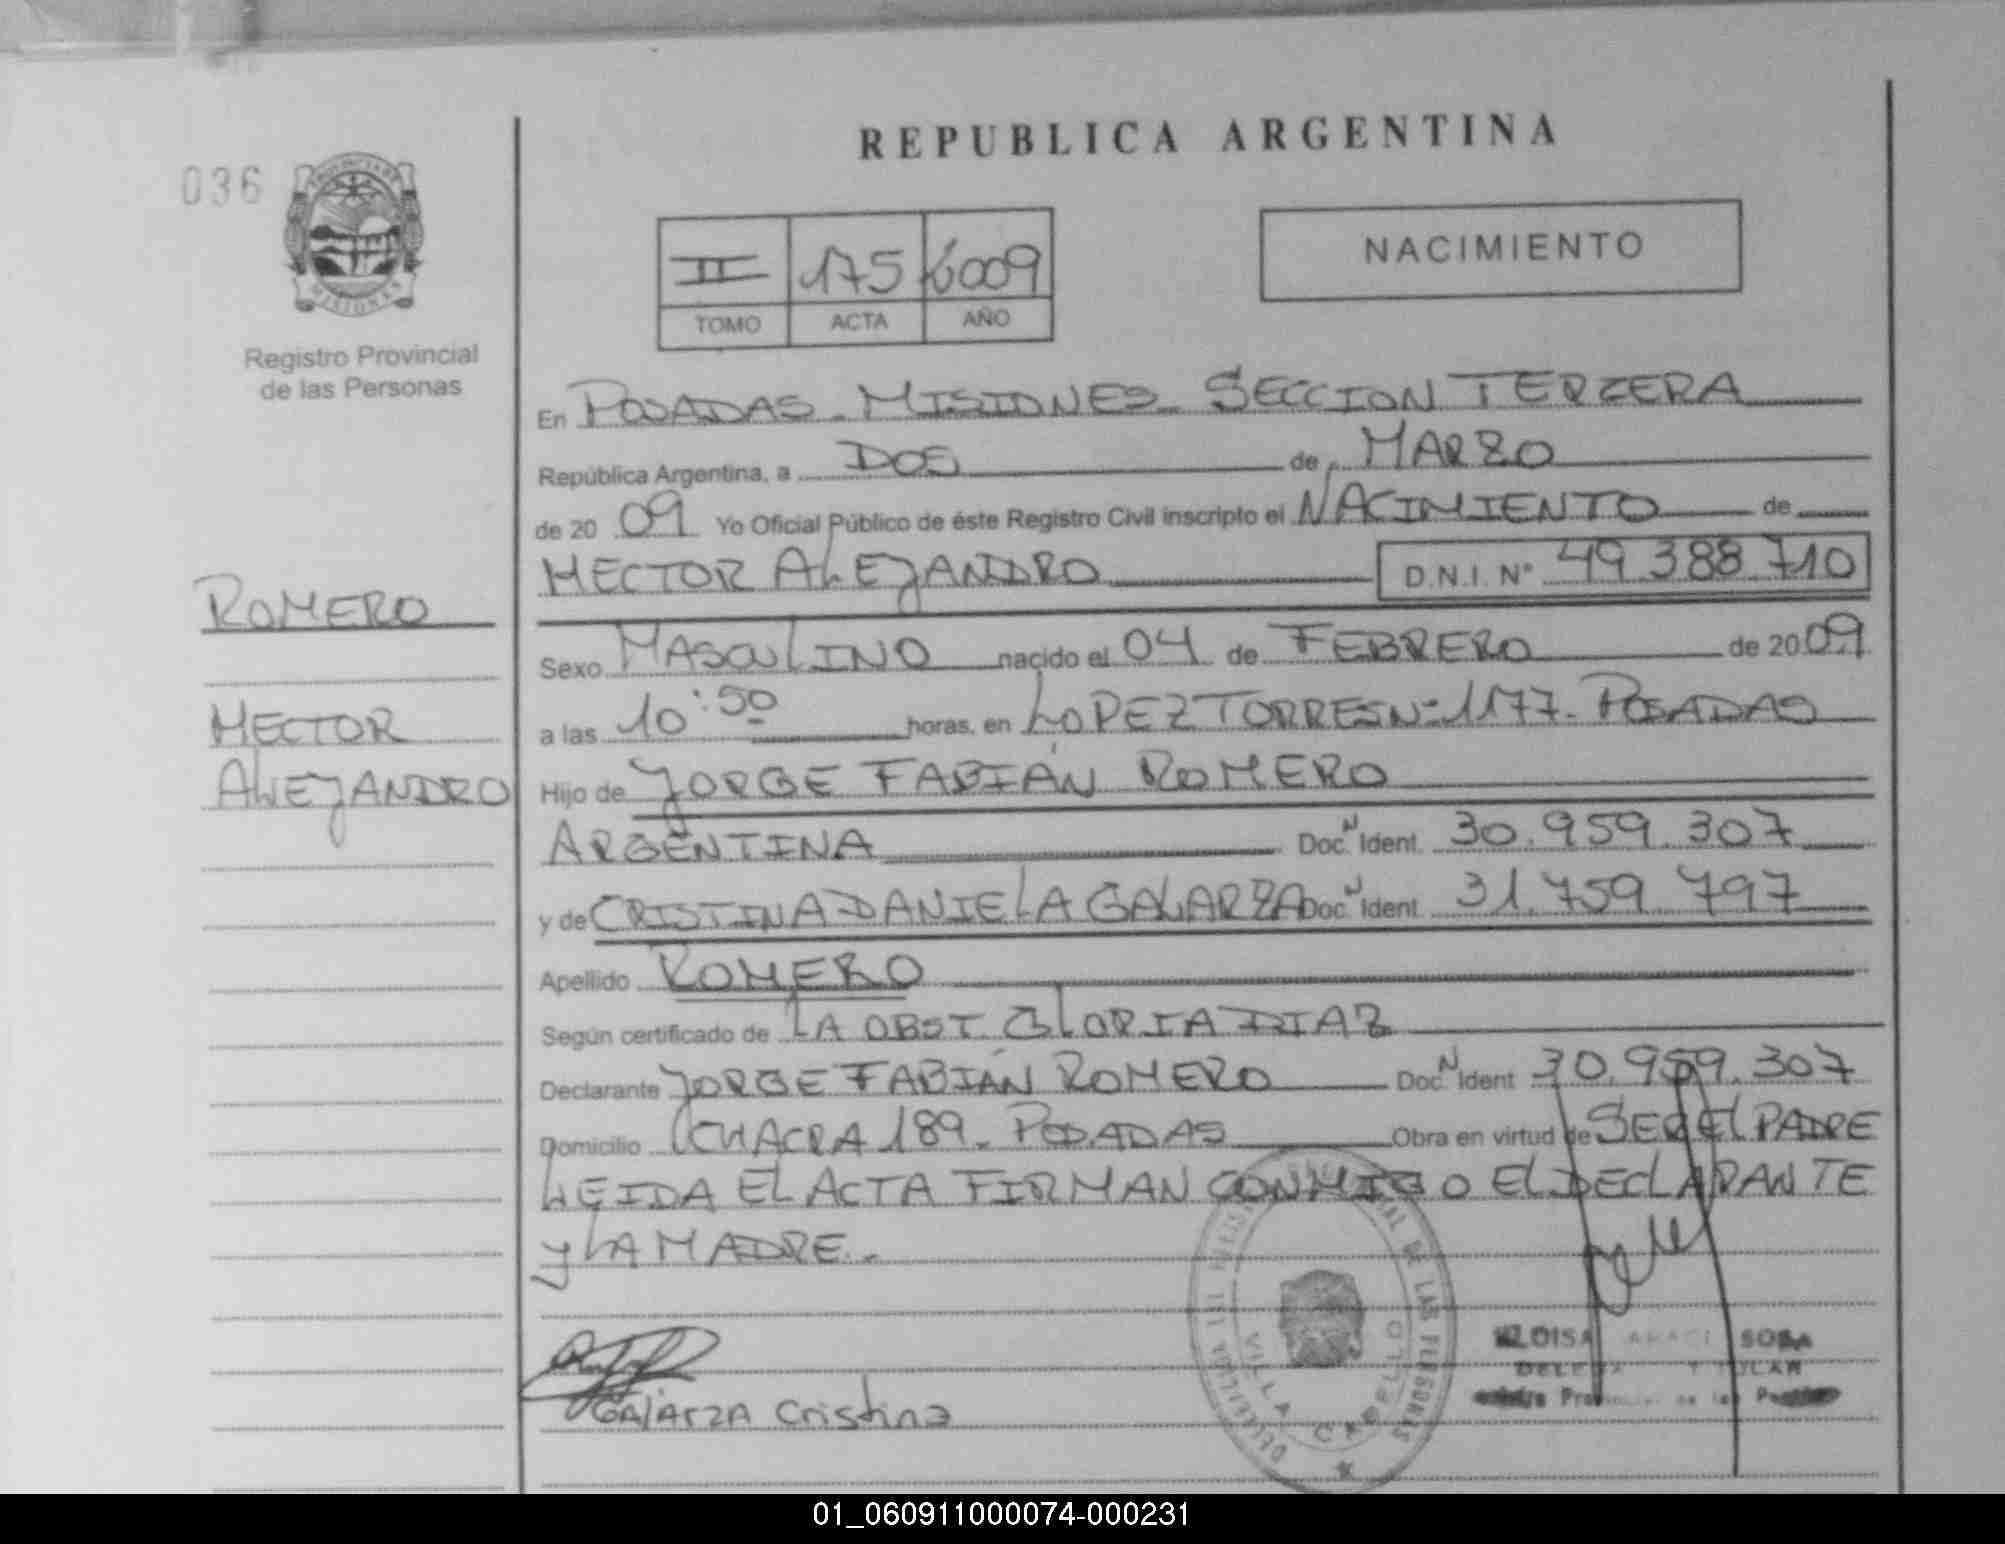 REPUBLICA ARGENTINA
036
PROVINCIA DE
MISIONES
Registro Provincial
de las Personas
II 175 2009
TOMO ACTA AÑO
NACIMIENTO
En POSADAS - MISIONES - SECCION TERCERA
República Argentina, a DOS de MARZO
de 2009 Yo Oficial Público de éste Registro Civil inscripto el NACIMIENTO de
HECTOR ALEJANDRO D.N.I. N° 49.388.710
ROMERO
HECTOR
ALEJANDRO
Sexo MASCULINO nacido el 04 de FEBRERO de 2009
a las 10:50 horas, en LOPEZ TORRES N=1177- POSADAS
Hijo de JORGE FABIÁN ROMERO
ARGENTINA Doc. N Ident. 30.959.307
y de CRISTINA DANIELA GALARZA Doc. N Ident. 31.759.797
Apellido ROMERO
Según certificado de LA OBST. GLORIA DIAZ
Declarante JORGE FABIÁN ROMERO Doc. N Ident 30.959.307
Domicilio CHACRA 189 - POSADAS Obra en virtud de SER EL PADRE
LEIDA EL ACTA FIRMAN CONMIGO EL DECLARANTE
Y LA MADRE.-
GAlArzA Cristina
VILLA CABELLO
DE LAS PERSONAS
ELOISA SOSA
01_060911000074-000231